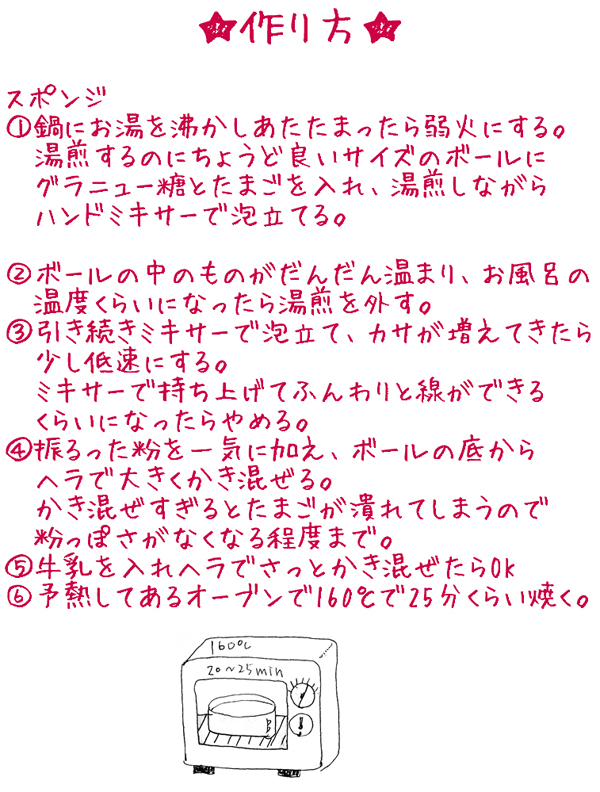 ★作り方★
スポンジ
①鍋にお湯を沸かしあたたまったら弱火にする。
湯煎するのにちょうど良いサイズのボールに
グラニュー糖とたまごを入れ、湯煎しながら
ハンドミキサーで泡立てる。
②ボールの中のものがだんだん温まり、お風呂の
温度くらいになったら湯煎を外す。
③引き続きミキサーで泡立て、カサが増えてきたら
少し低速にする。
ミキサーで持ち上げてふんわりと線ができる
くらいになったらやめる。
④振るった粉を一気に加え、ボールの底から
ヘラで大きくかき混ぜる。
かき混ぜすぎるとたまごが潰れてしまうので
粉っぽさがなくなる程度まで。
⑤牛乳を入れヘラでさっとかき混ぜたらOK
⑥予熱してあるオーブンで160℃で25分くらい焼く。
160℃
20~25min